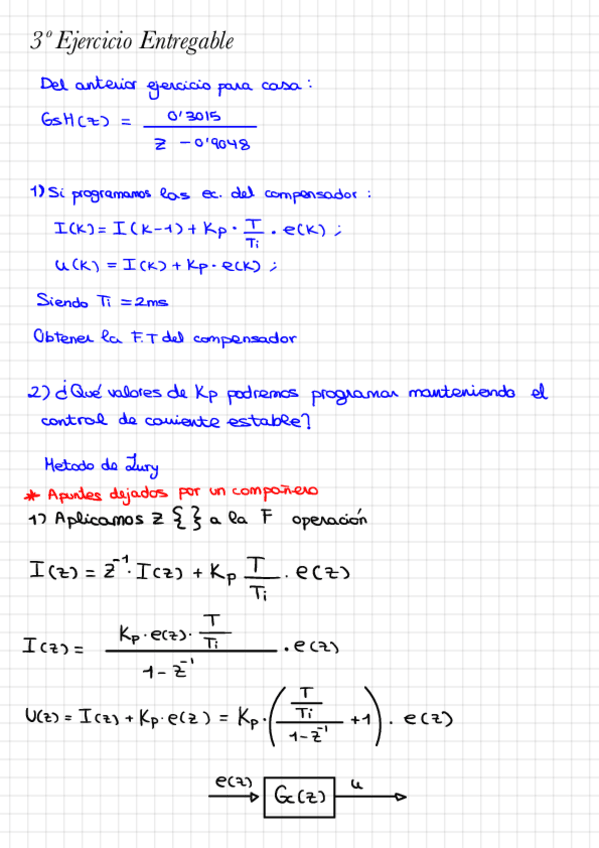 3º Ejercicio Entregable
Del anterior ejercicio para casa:
GsH(z) = 0'3015 / z - 0'9048
1) Si programamos las ec. del compensador:
I(k) = I(k-1) + Kp · T/Ti · e(k) ;
u(k) = I(k) + Kp · e(k) ;
Siendo Ti = 2ms
Obtener la F.T del compensador
2) ¿Qué valores de Kp podremos programar manteniendo el
control de corriente estable?
Metodo de Jury
* Apuntes dejados por un compañero
1) Aplicamos z { } a la F operación
I(z) = z⁻¹ · I(z) + Kp T/Ti · e(z)
I(z) = Kp · e(z) · T/Ti / 1 - z⁻¹ · e(z)
U(z) = I(z) + Kp · e(z) = Kp · ( T/Ti / 1 - z⁻¹ + 1 ) · e(z)
e(z) Gc(z) u